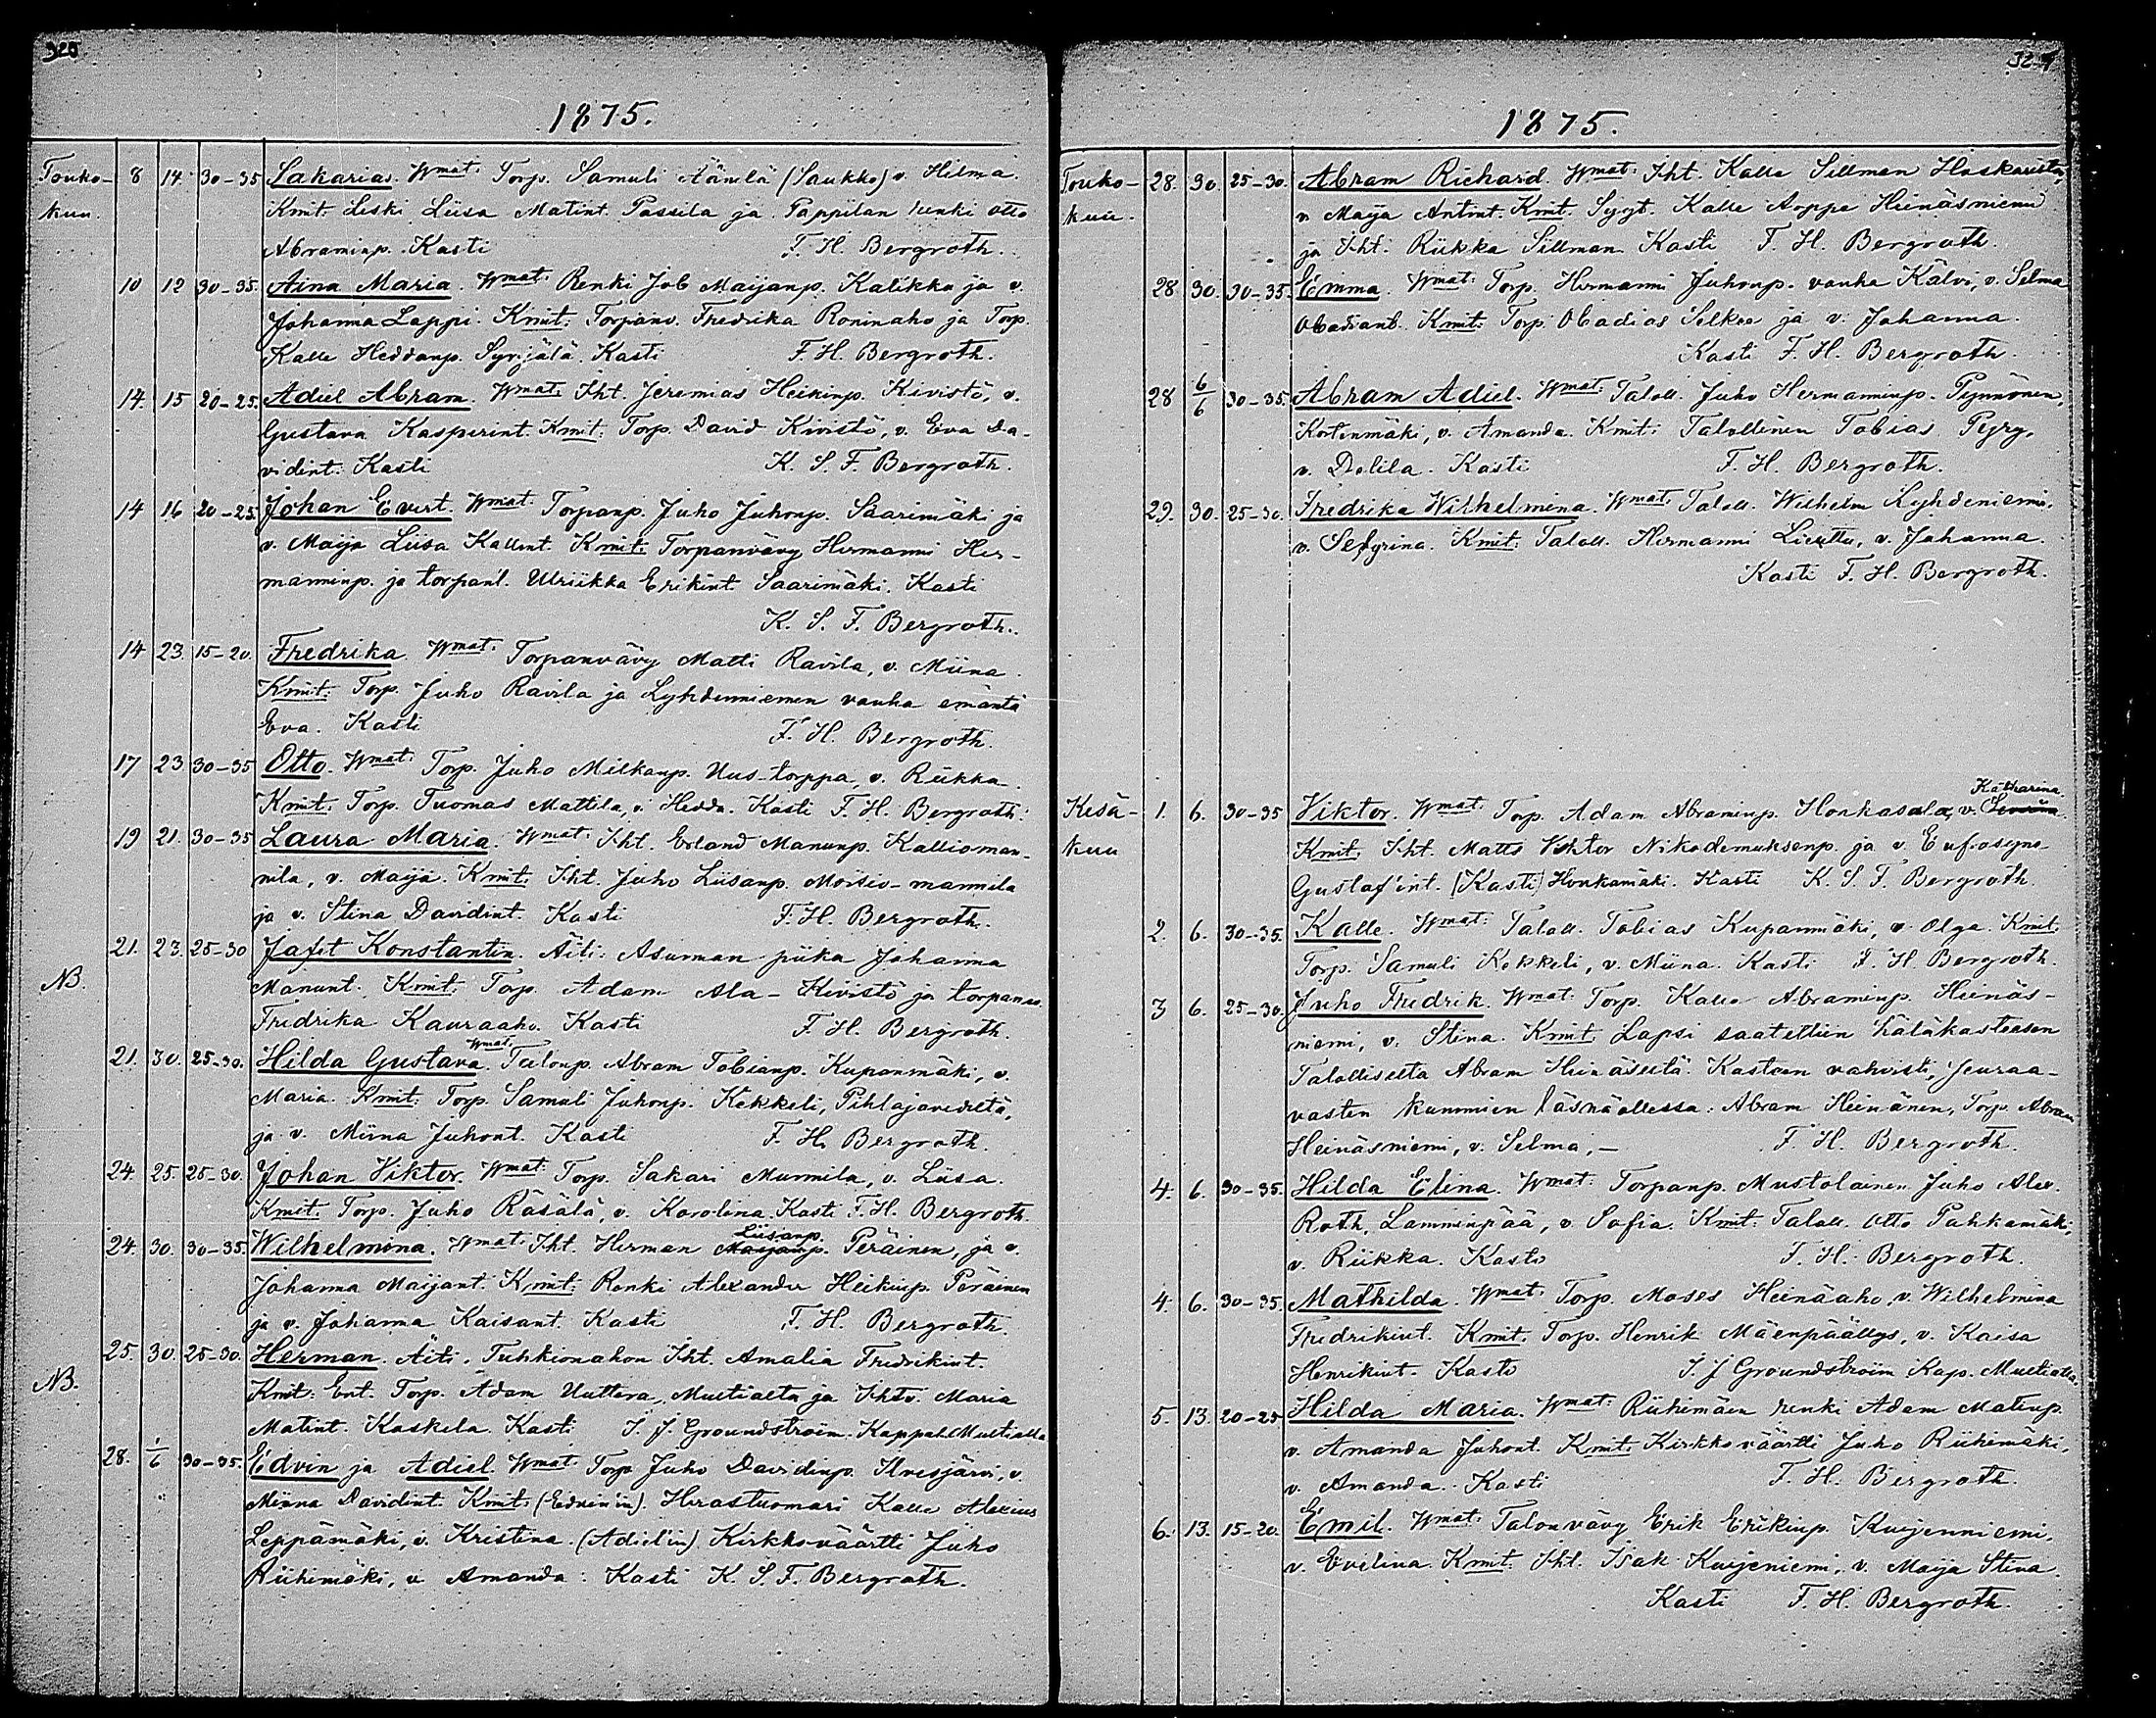 1875.
Touko- 8 14 30-35 Sakarias. Wmat. Torp. Samuli Äänilä (Saukko) v. Hilma.
kuu. Kmit. Leski Liisa Matint. Passila ja Pappilan renki Otto
Abraminp. Kasti F. H. Bergroth.
10 12 30-35. Aina Maria. Wmat. Renki Job Maijanp. Kalikka ja v.
Johanna Lappi. Kmit. Torpanv. Fredrika Roninaho ja Torp.
Kalle Heddanp. Syrjälä. Kasti F. H. Bergroth.
14. 15 20-25. Adiel Abram. Wmat. Iht. Jeremias Heikinp. Kivistö, v.
Gustava Kasperint. Kmit. Torp. David Kivistö, v. Eva Da-
vidint. Kasti K. S. F. Bergroth.
14 16 20-25 Johan Evert. Wmat. Torpanp. Juho Juhonp. Saarimäki ja
v. Maija Liisa Kallent. Kmit. Torpanvävy Hermanni Her-
manninp. ja torpant. Ulriikka Erikint Saarimäki. Kasti
K. S. F. Bergroth.
14 23. 15-20. Fredrika. Wmat. Torpanvävy Matti Ravila, v. Miina.
Kmit. Torp. Juho Ravila ja Lyhdenniemen vanha emäntä
Eva. Kasti F. H. Bergroth.
17 23 30-35 Otto. Wmat. Torp. Juho Milkanp. Uus-torppa, v. Riikka.
Kmit. Torp. Tuomas Mattila, v. Hedda. Kasti F. H. Bergroth.
19 21. 30-35 Laura Maria. Wmat. Iht. Erland Manunp. Kallioman-
nila, v. Maija. Kmit. Iht. Juho Liisanp. Moisio-mannila
ja v. Stina Davidint. Kasti F. H. Bergroth.
21. 23. 25-30 Jafet Konstantin. Äiti. Asunman piika Johanna
NB. Manunt. Kmit. Torp. Adam Ala-Kivistö ja torpanv.
Fredrika Kauraaho. Kasti F. H. Bergroth.
21. 30. 25-30. Hilda Gustava. Wmat. Talonp. Abram Tobianp. Kupanmäki, v.
Maria. Kmit. Torp. Samuli Juhonp. Kekkeli, Pihlajavedeltä,
ja v. Miina Juhont. Kasti F. H. Bergroth.
24. 25. 25-30. Johan Viktor. Wmat. Torp. Sakari Murmila, v. Liisa.
Kmit. Torp. Juho Räsälä, v. Karolina. Kasti F. H. Bergroth.
24. 30. 30-35. Wilhelmina. Wmat. Iht. Herman Maijanp. Liisanp. Peräinen, ja v.
Johanna Maijant. Kmit. Renki Alexander Heikinp. Peräinen
ja v. Johanna Kaisant. Kasti F. H. Bergroth.
25. 30 25-30. Herman. Äiti. Tuhkionahon Iht. Amalia Fredrikint.
NB. Kmit. Ent. Torp. Adam Uuttera, Multialta ja Iht. Maria
Matint. Kaskela. Kasti I. J. Groundstroim. Kappal. Multialla
28. 1/6 30-35. Edvin ja Adiel. Wmat. Torp. Juho Davidinp. Ilvesjärvi, v.
Miina Davidint. Kmit. (Edvin'in). Herastuomari Kalle Alexius
Leppämäki, v. Kristina. (Adiel'in) Kirkkoväärtti Juho
Riihimäki, v. Amanda: Kasti K. S. F. Bergroth.
1875.
Touko- 28. 30. 25-30. Abram Richard. Wmat. Iht. Kalle Sillman Haskavista,
kuu. v. Maija Antint. Kmit. Syyt. Kalle Arppe Heinäsniemi
ja Iht. Riikka Sillman. Kasti F. H. Bergroth.
28. 30. 30-35. Emma. Wmat. Torp. Hermanni Juhonp. vanha Kälvi, v. Selma
Obadiant. Kmit. Torp. Obadias Selkee ja v. Johanna.
Kasti F. H. Bergroth.
28 6/6 30-35. Abram Adiel. Wmat. Taloll. Juho Hermanninp. Pynnönen,
Kortenmäki, v. Amanda. Kmit. Talollinen Tobias Pyry,
v. Delila. Kasti F. H. Bergroth.
29. 30. 25-30. Fredrika Wilhelmina. Wmat. Taloll. Wilhelm Lyhdeniemi,
v. Sefyrina. Kmit. Taloll. Hermanni Lieuttu, v. Johanna.
Kasti F. H. Bergroth.
Kesä- 1. 6. 30-35 Viktor. Wmat. Torp. Adam Abraminp. Honkasalo, v. Katharina.
kuu Kmit. Iht. Matts Viktor Nikodemuksenp. ja v. Eufrosyne
Gustaf'int. (Kasti) Honkamäki. Kasti K. S. F. Bergroth.
2. 6. 30-35. Kalle. Wmat. Taloll. Tobias Kupanmäki, v. Olga. Kmit.
Torp. Samuli Kekkeli, v. Miina. Kasti F. H. Bergroth.
3 6. 25-30. Juho Fredrik. Wmat. Torp. Kalle Abraminp. Heinäs-
niemi, v. Stina. Kmit. Lapsi saatettiin hätäkasteesen
Talolliselta Abram Heinäseltä. Kasteen vahvisti, seuraa-
vasten kummien läsnäollessa: Abram Heinänen, Torp. Abram
Heinäsniemi, v. Selma,- F. H. Bergroth.
4. 6. 30-35. Hilda Elina. Wmat. Torpanp. Mustolainen Juho Alex.
Roth, Lamminpää, v. Sofia. Kmit. Taloll. Otto Pahkamäki,
v. Riikka. Kasti F. H. Bergroth.
4. 6. 30-35. Mathilda. Wmat. Torp. Moses Heinäaho, v. Wilhelmina
Fredrikint. Kmit. Torp. Henrik Mäenpäällys, v. Kaisa
Henrikint. Kasti I. J. Groundstroim Kap. Multialla.
5. 13. 20-25 Hilda Maria. Wmat. Riihimäen renki Adam Matinp.
v. Amanda Juhont. Kmit. Kirkkoväärtti Juho Riihimäki,
v. Amanda. Kasti F. H. Bergroth.
6. 13. 15-20. Emil. Wmat. Talonvävy Erik Erikinp. Kurjenniemi,
v. Evelina. Kmit. Iht. Isak Kurjeniemi, v. Maija Stina.
Kasti F. H. Bergroth.